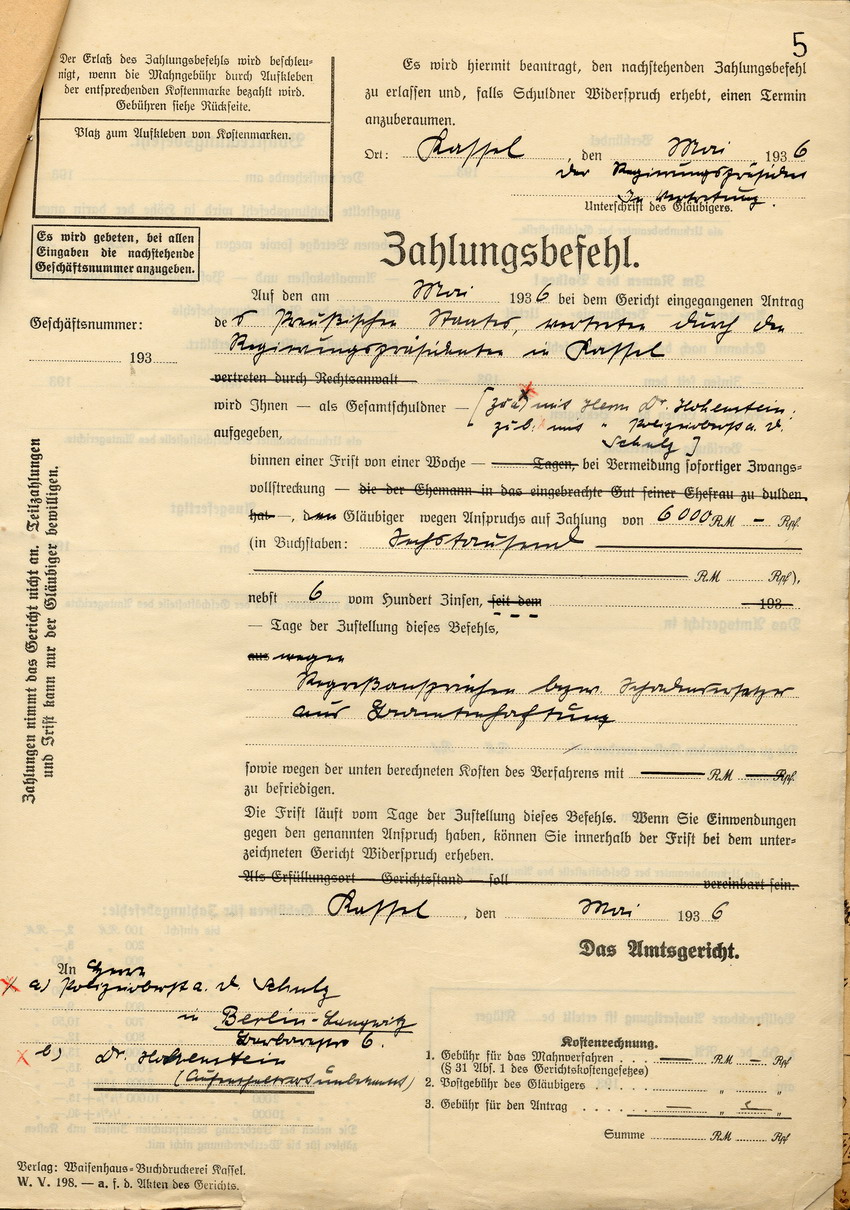 5
Der Erlaß des Zahlungsbefehls wird beschleu-
nigt, wenn die Mahngebühr durch Aufkleben
der entsprechenden Kostenmarke bezahlt wird.
Gebühren siehe Rückseite.
Platz zum Aufkleben von Kostenmarken.
Es wird hiermit beantragt, den nachstehenden Zahlungsbefehl
zu erlassen und, falls Schuldner Widerspruch erhebt, einen Termin
anzuberaumen.
Ort: Kassel, den Mai 1936
der Regierungspräsident
In Vertretung.
Unterschrift des Gläubigers.
Es wird gebeten, bei allen
Eingaben die nachstehende
Geschäftsnummer anzugeben.
Zahlungsbefehl.
Geschäftsnummer:
193
Auf den am Mai 1936 bei dem Gericht eingegangenen Antrag
des Preußischen Staates, vertreten durch den
Regierungspräsidenten in Kassel
vertreten durch Rechtsanwalt
wird Ihnen — als Gesamtschuldner — [zu a) mit Herrn Dr. Hohenstein;
aufgegeben, zu b. mit " Polizeioberst a. d.
Schulz]
binnen einer Frist von einer Woche — Tagen, bei Vermeidung sofortiger Zwangs-
vollstreckung — die der Ehemann in das eingebrachte Gut seiner Ehefrau zu dulden,
hat —, den Gläubiger wegen Anspruchs auf Zahlung von 6000 RM — Rpf.
(in Buchstaben: Sechstausend
RM Rpf),
nebst 6 vom Hundert Zinsen, seit dem 193
— Tage der Zustellung dieses Befehls,
aus wegen
Regreßansprüchen bezw. Schadensersatzes
aus Beamtenhaftung
sowie wegen der unten berechneten Kosten des Verfahrens mit — RM — Rpf.
zu befriedigen.
Die Frist läuft vom Tage der Zustellung dieses Befehls. Wenn Sie Einwendungen
gegen den genannten Anspruch haben, können Sie innerhalb der Frist bei dem unter-
zeichneten Gericht Widerspruch erheben.
Als Erfüllungsort — Gerichtsstand — soll vereinbart sein.
Kassel, den Mai 1936
Das Amtsgericht.
Zahlungen nimmt das Gericht nicht an. Teilzahlungen
und Frist kann nur der Gläubiger bewilligen.
An Herrn
a) Polizeioberst a. d. Schulz
in Berlin-Lankwitz
6.
b) Dr. Hohenstein
(Aufenthaltsort unbekannt)
Kostenrechnung.
1. Gebühr für das Mahnverfahren . . . — RM — Rpf
(§ 31 Abs. 1 des Gerichtskostengesetzes)
2. Postgebühr des Gläubigers " "
3. Gebühr für den Antrag . . . . . — " "
Summe RM Rpf
Verlag: Waisenhaus-Buchdruckerei Kassel.
W. V. 198. — a. f. d. Akten des Gerichts.